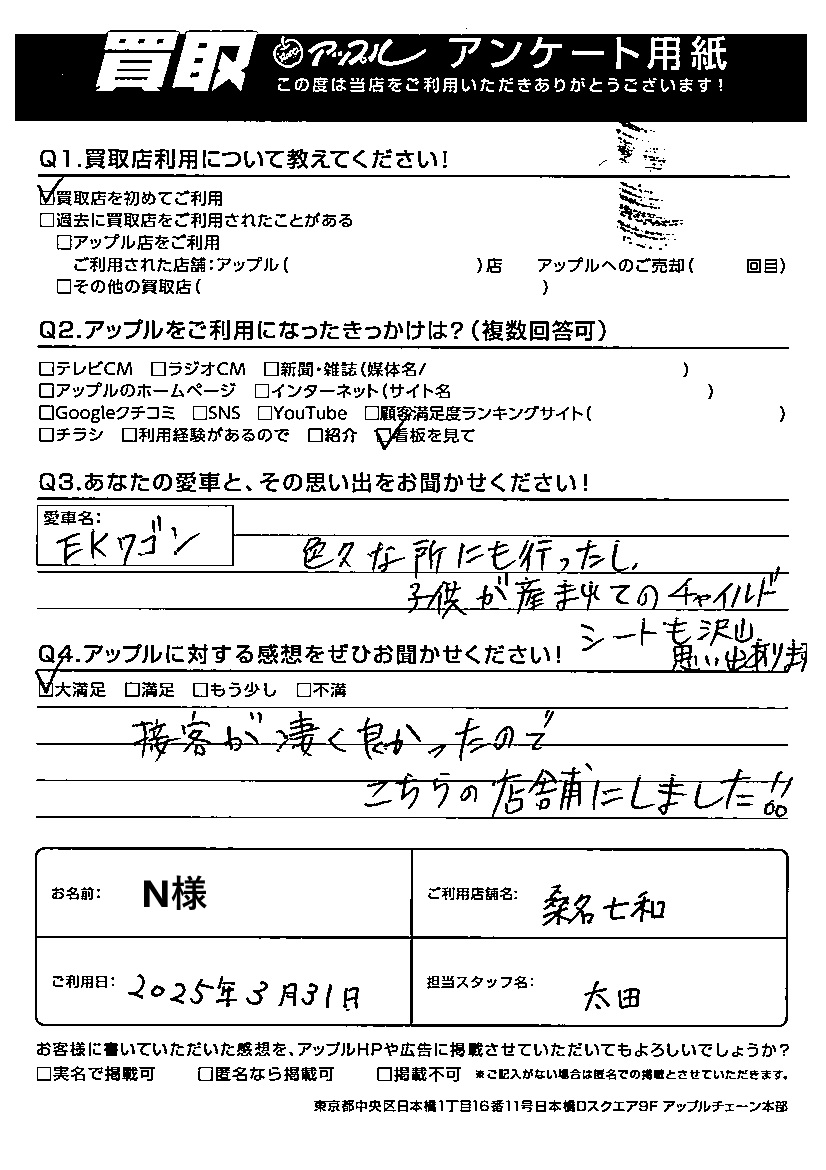 買取 アップル アンケート用紙
この度は当店をご利用いただきありがとうございます!
Q1.買取店利用について教えてください!
☑買取店を初めてご利用
□過去に買取店をご利用されたことがある
□アップル店をご利用
ご利用された店舗:アップル( )店 アップルへのご売却( 回目)
□その他の買取店( )
Q2.アップルをご利用になったきっかけは?(複数回答可)
□テレビCM □ラジオCM □新聞・雑誌(媒体名/ )
□アップルのホームページ □インターネット(サイト名 )
□Googleクチコミ □SNS □YouTube □顧客満足度ランキングサイト( )
□チラシ □利用経験があるので □紹介 ☑看板を見て
Q3.あなたの愛車と、その思い出をお聞かせください!
愛車名:
EKワゴン
色々な所にも行ったし、
子供が産まれてのチャイルド
シートも沢山
思い出あります
Q4.アップルに対する感想をぜひお聞かせください!
☑大満足 □満足 □もう少し □不満
接客が凄く良かったので
こちらの店舗にしました!!
お名前: N様
ご利用店舗名: 桑名七和
ご利用日: 2025年3月31日
担当スタッフ名: 太田
お客様に書いていただいた感想を、アップルHPや広告に掲載させていただいてもよろしいでしょうか?
□実名で掲載可 □匿名なら掲載可 □掲載不可 ※ご記入がない場合は匿名での掲載とさせていただきます。
東京都中央区日本橋1丁目16番11号日本橋Dスクエア9F アップルチェーン本部